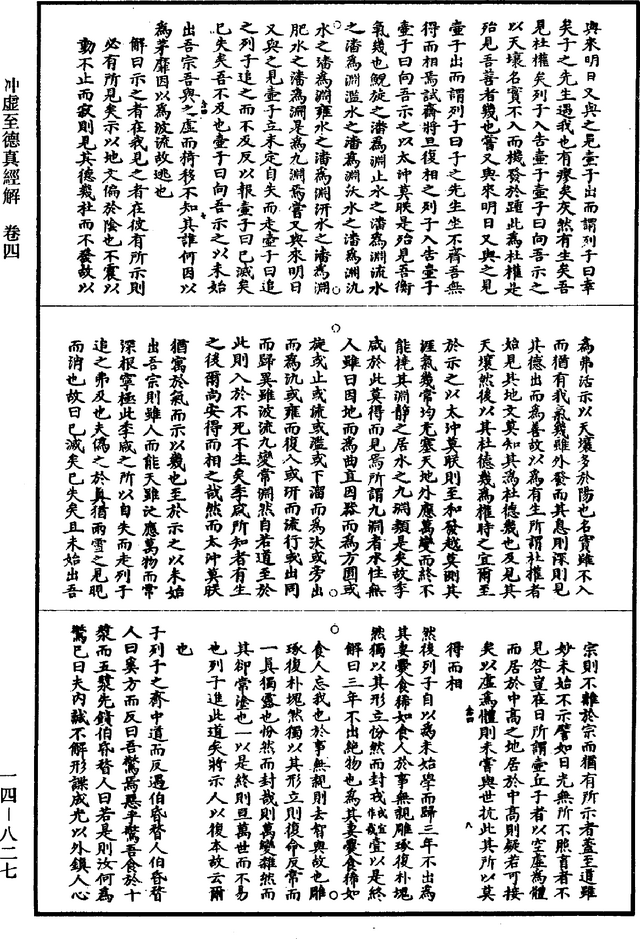 與來明日又與之見壺子出而謂列子曰幸
矣子之先生遇我也有瘳矣灰然有生矣吾
見杜權矣列子入告壺子壺子曰向吾示之
以天壤名實不入而機發於踵此為杜權是
殆見吾善者幾也嘗又與來明日又與之見
壺子出而謂列子曰子之先生坐不齋吾無
得而相焉試齋將且復相之列子入告壺子
壺子曰向吾示之以太沖莫眹是殆見吾衡
氣幾也鯢旋之潘為淵止水之潘為淵流水
之潘為淵濫水之潘為淵沃水之潘為淵氿
水之潘為淵雍水之潘為淵汧水之潘為淵
肥水之潘為淵是為九淵焉嘗又與來明日
又與之見壺子立未定自失而走壺子曰追
之列子追之而不及反以報壺子曰已滅矣
已失矣吾不及也壺子曰向吾示之以未始
出吾宗吾與之虛而猗移不知其誰何因以
為茅靡因以為波流故逃也
解曰示之者在我見之者在彼有所示則
必有所見矣示以地文偏於陰也不震以
動不止而寂則見其德幾杜而不發故以
為弗活示以天壤多於陽也名實雖不入
而猶有我氣幾雖外發而其息則深則見
其德出而為善故以為有生所謂杜權者
始見其地文莫知其為杜德幾也及見其
天壤然後以其杜德幾為權時之宜爾至
於示之以太沖莫眹則至和發越莫測其
涯氣幾常均充塞天地外應萬變而終不
能撓其淵靜之居水之九淵類是矣故季
咸於此莫得而見焉所謂九淵者水性無
人雖曰因地而為曲直因器而為方圓或
旋或止或流或濫或下溜而為沃或旁出
而為氿或雍而復入或汧而流行或出同
而歸異雖波流九變常淵然自若道至於
此則入於不死不生矣季咸所知者有生
之後爾尚安得而相之哉然而太沖莫眹
猶寓於氣而示以幾也至於示之以未始
出吾宗則雖人而能天雖汎應萬物而常
深根寧極此季咸之所以自失而走列子
追之弗及也夫偽之於真猶雨雪之見晛
而消也故曰已滅矣已失矣且未始出吾
宗則不離於宗而猶有所示者蓋至道雖
妙未始不示譬如日光無所不照盲者不
見咎豈在日所謂壺丘子者以空虛為體
而居於中高之地居於中高則疑若可接
矣以虛為體則未嘗與世抗此其所以莫
得而相
然後列子自以為未始學而歸三年不出為
其妻爨食狶如食人於事無親雕瑑復朴塊
然獨以其形立㤋然而封戎壹以是終
解曰三年不出絕物也為其妻爨食狶如
食人忘我也於事無親則去智與故也雕
瑑復朴塊然獨以其形立則復命反常而
一真獨露也㤋然而封哉則萬變雜然而
其卻常塗也一以是終則亘萬世而不易
也列子進此道矣將示人以復本故云爾
也
子列子之齊中道而反遇伯昏瞀人伯昏瞀
人曰奚方而反曰吾驚焉惡乎驚吾食於十
漿而五漿先饋伯昏瞀人曰若是則汝何為
驚已曰夫內誠不解形諜成光以外鎮人心
沖虛至德真經解 卷四
一四—八二七